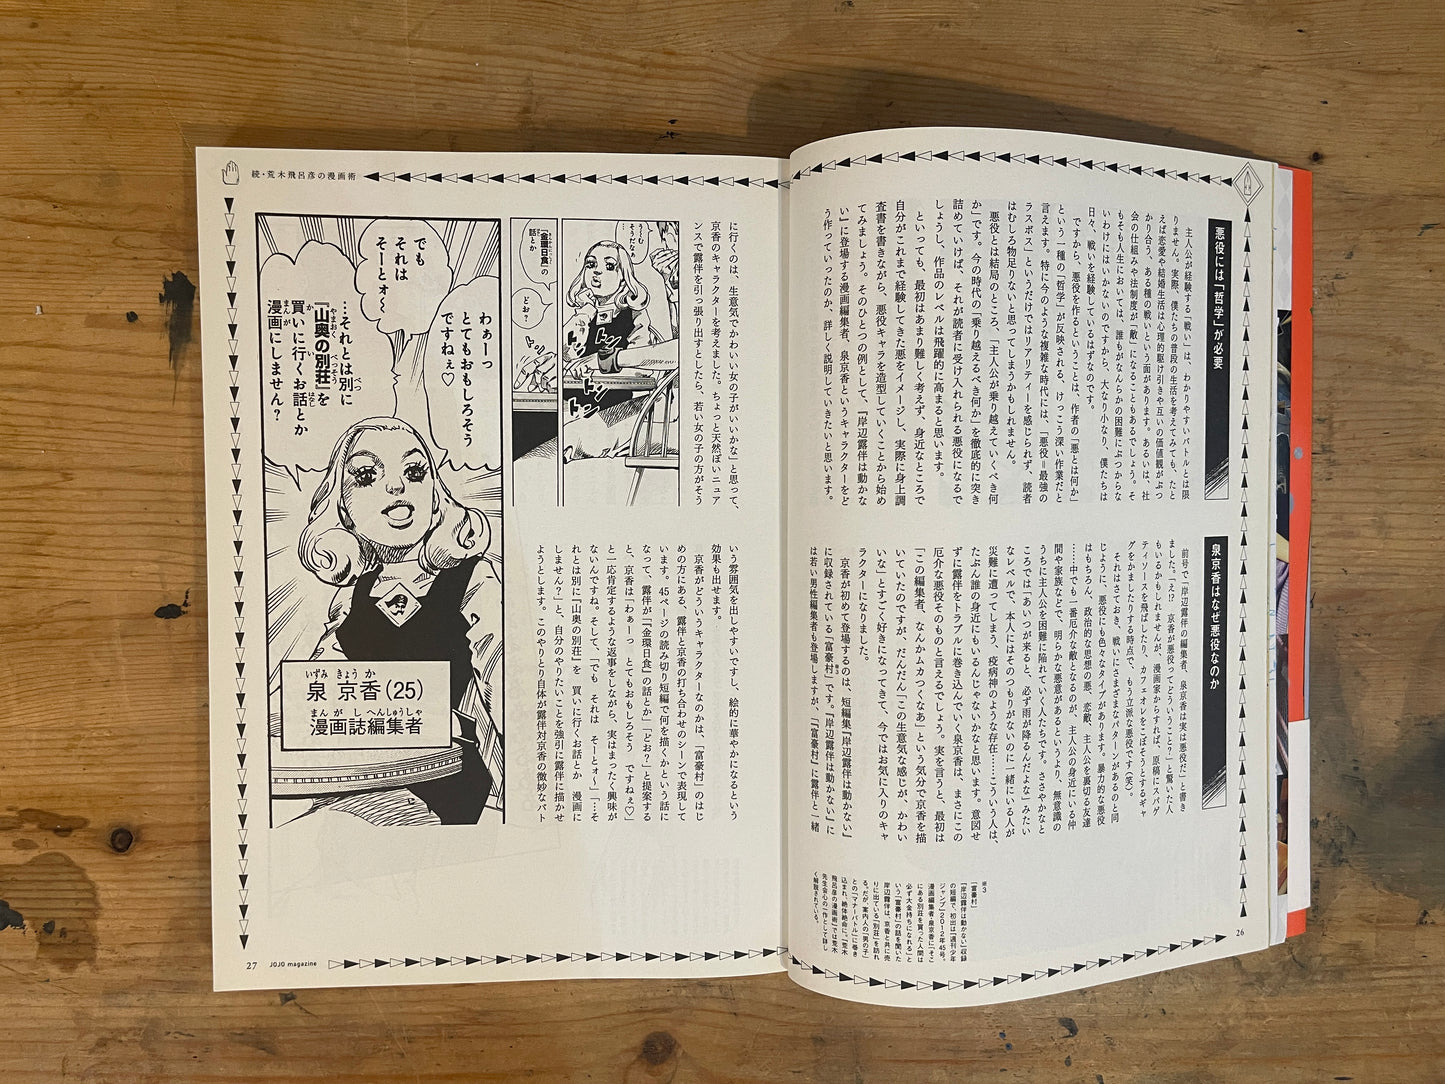 悪役には「哲学」が必要
主人公が経験する「戦い」は、わかりやすいバトルとは限
りません。実際、僕たちの普段の生活を考えてみても、たと
えば恋愛や結婚生活は心理的駆け引きや互いの価値観がぶつ
かり合う、ある種の戦いという面があります。あるいは、社
会の仕組みや法制度が「敵」になることもあるでしょう。そ
もそも人生においては、誰もがなんらかの困難にぶつからな
いわけにはいかないのですから、大なり小なり、僕たちは
日々、戦いを経験しているはずなのです。
ですから、悪役を作るということは、作者の「悪とは何か」
という一種の「哲学」が反映される、けっこう深い作業だと
言えます。特に今のような複雑な時代には、「悪役＝最強の
ラスボス」というだけではリアリティーを感じられず、読者
はむしろ物足りないと思ってしまうかもしれません。
悪役とは結局のところ、「主人公が乗り越えていくべき何
か」です。今の時代の「乗り越えるべき何か」を徹底的に突き
詰めていけば、それが読者に受け入れられる悪役になるで
しょうし、作品のレベルは飛躍的に高まると思います。
といっても、最初はあまり難しく考えず、身近なところで
自分がこれまで経験してきた悪をイメージし、実際に身上調
査書を書きながら、悪役キャラを造型していくことから始め
てみましょう。そのひとつの例として、『岸辺露伴は動かな
い』に登場する漫画編集者、泉京香というキャラクターをど
う作っていったのか、詳しく説明していきたいと思います。
泉京香はなぜ悪役なのか
前号で「岸辺露伴の編集者、泉京香は実は悪役だ」と書き
ました。「え!?　京香が悪役ってどういうこと?」と驚いた人
もいるかもしれませんが、漫画家からすれば、原稿にスパゲ
ティソースを飛ばしたり、カフェオレをこぼそうとするギャ
グをかましたりする時点で、もう立派な悪役です（笑）。
それはさておき、戦いにさまざまなパターンがあるのと同
じように、悪役にも色々なタイプがあります。暴力的な悪役
はもちろん、政治的な思想の悪、恋敵、主人公を裏切る友達
……中でも一番厄介な敵となるのが、主人公の身近にいる仲
間や家族などで、明らかな悪意があるというより、無意識の
うちに主人公を困難に陥れていく人たちです。ささやかなと
ころでは「あいつが来ると、必ず雨が降るんだよな」みたい
なレベルで、本人にはそのつもりがないのに一緒にいる人が
災難に遭ってしまう、疫病神のような存在……こういう人は、
たぶん誰の身近にもいるんじゃないかなと思います。意図せ
ずに露伴をトラブルに巻き込んでいく泉京香は、まさにこの
厄介な悪役そのものと言えるでしょう。実を言うと、最初は
「この編集者、なんかムカつくなあ」という気分で京香を描
いていたのですが、だんだん「この生意気な感じが、かわい
いな」とすごく好きになってきて、今ではお気に入りのキャ
ラクターになりました。
京香が初めて登場するのは、短編集『岸辺露伴は動かない』
に収録されている「富豪村」です。『岸辺露伴は動かない』に
は若い男性編集者も登場しますが、「富豪村」に露伴と一緒
※3
「富豪村」
『岸辺露伴は動かない』収録
の短編で、初出は「週刊少年
ジャンプ」2012年45号。
漫画編集者・泉京香に「そこ
にある別荘を買った人間は
必ず大金持ちになれる」と
いう「富豪村」の話を聞いた
岸辺露伴は、京香と共に売
りに出ている「別荘」を訪れ
る。だが、案内人の「男の子」
との「マナーバトル」に巻き
込まれ、絶体絶命に。「荒木
飛呂彦の漫画術」では荒木
先生会心の一作として詳し
く解説されている。
26
続・荒木飛呂彦の漫画術
に行くのは、生意気でかわいい女の子がいいかな」と思って、
京香のキャラクターを考えました。ちょっと天然ぽいニュア
ンスで露伴を引っ張り出すとしたら、若い女の子の方がそう
いう雰囲気を出しやすいですし、絵的に華やかになるという
効果も出せます。
京香がどういうキャラクターなのかは、「富豪村」のはじ
めの方にある、露伴と京香の打ち合わせのシーンで表現して
います。45ページの読み切り短編で何を描くかという話に
なって、露伴が「『金環日食』の話とか」「どお?」と提案する
と、京香は「わぁーっ　とてもおもしろそう　ですねぇ♡」
と一応肯定するような返事をしながら、実はまったく興味が
ないんですね。そして、「でも　それは　そーとォ〜」「…そ
れとは別に『山奥の別荘』を　買いに行くお話とか　漫画に
しません?」と、自分のやりたいことを強引に露伴に描かせ
ようとします。このやりとり自体が露伴対京香の微妙なバト
うーむ
そうだなぁ…
『金環日食』の
話とか
どお?
トン
トン
トン
わぁーっ
とてもおもしろそう
ですねぇ♡
でも
それは
そーとォ〜
…それとは別に
『山奥の別荘』を
買いに行くお話とか
漫画にしません?
いずみ きょうか
泉 京香(25)
まんがし へんしゅうしゃ
漫画誌編集者
27 JOJO magazine